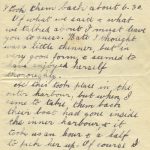 I took them back about 6.30
Of what we said & what
we talked about I must leave
you to guess. That I thought
was a little thinner, but in
very good form & seemed to
have enjoyed herself
thoroughly.
All this took place in the
outer harbour, but when I
came to take them back
their boat had gone inside
the inner harbour & it
took us an hour & a half
to pick her up. Of course I